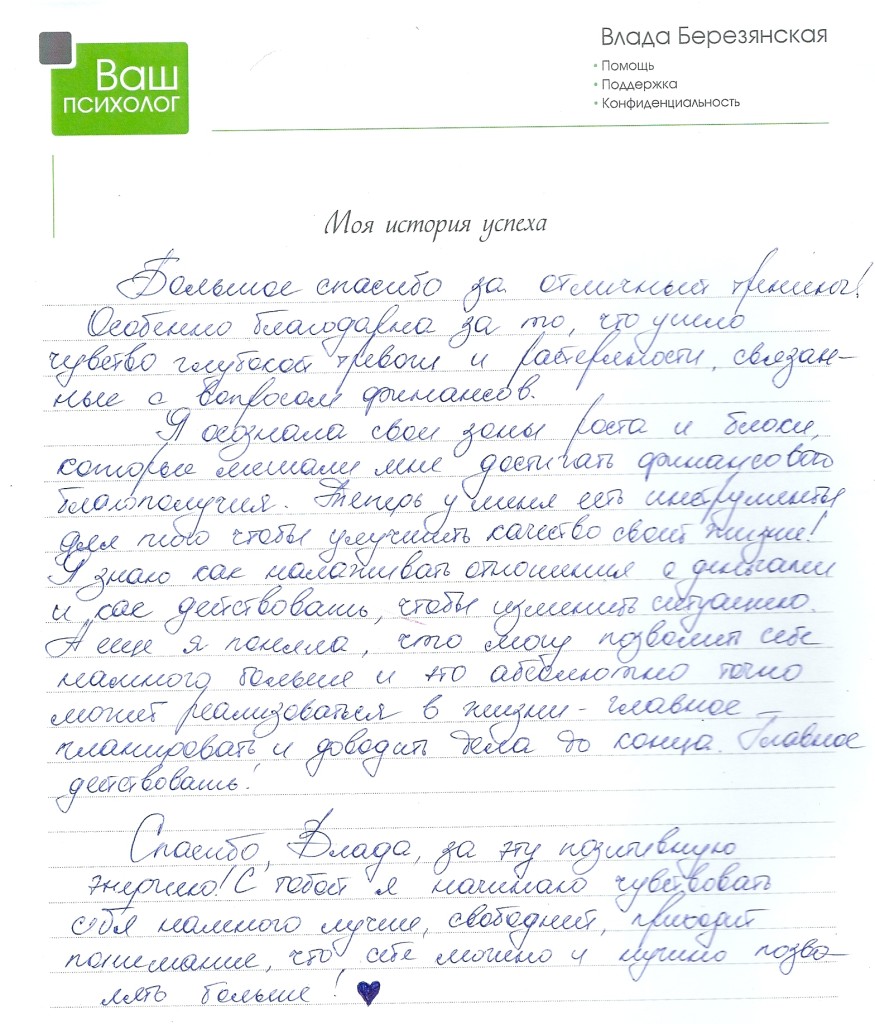 Ваш
психолог
Влада Березянская
• Помощь
• Поддержка
• Конфиденциальность
Моя история успеха
Большое спасибо за отличный тренинг!
Особенно благодарна за то, что ушло
чувство глубокой тревоги и растерянности, связан-
ные с вопросом финансов.
Я осознала свои зоны роста и блоки,
которые мешали мне достигать финансового
благополучия. Теперь у меня есть инструменты
для того чтобы улучшить качество своей жизни!
Я знаю как налаживать отношения с деньгами
и как действовать, чтобы изменить ситуацию.
А еще я поняла, что могу позволить себе
намного больше и это абсолютно точно
может реализоваться в жизни - главное
планировать и доводить дела до конца. Главное
действовать!
Спасибо, Влада, за эту позитивную
энергию! С тобой я начинаю чувствовать
себя намного лучше, свободней, приходит
понимание, что себе можно и нужно позво-
лять больше! ♥